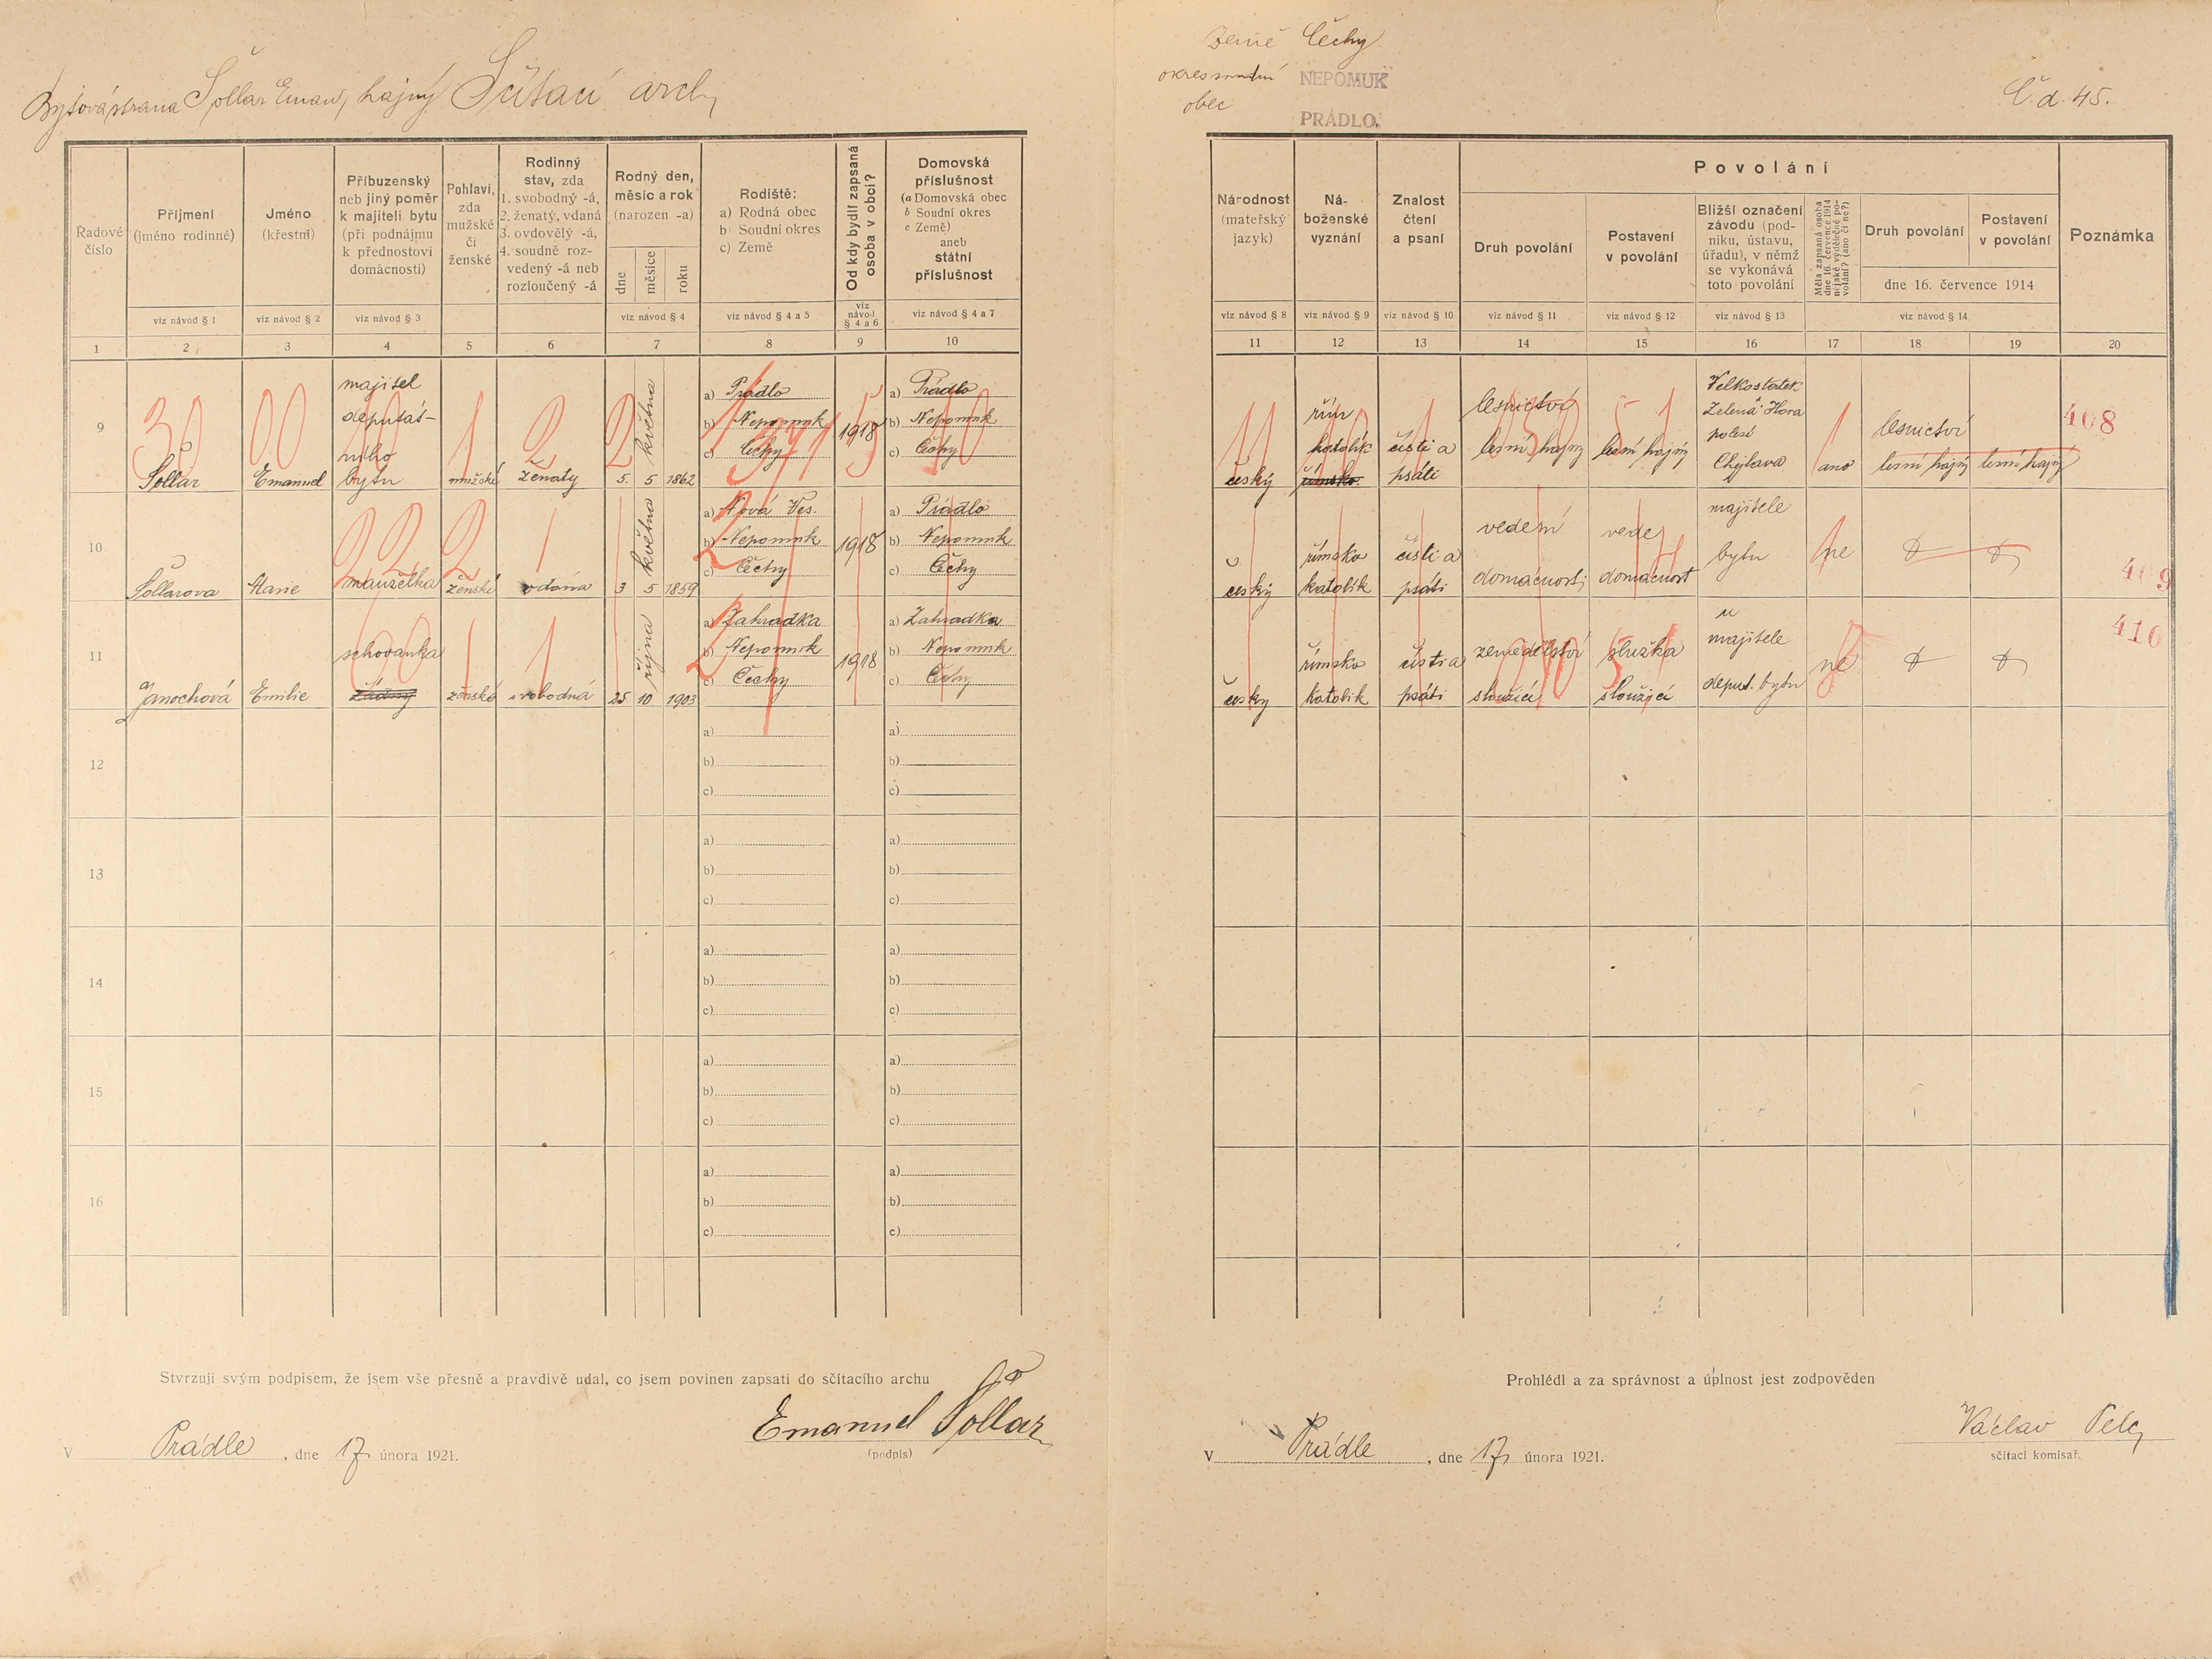 Bytová strana Šollar Eman, hajný Sčítací arch
Země Čechy
okres soudní NEPOMUK
obec PRÁDLO.
Č.d. 45.
Řadové číslo
Příjmení (jméno rodinné)
viz návod § 1
Jméno (křestní)
viz návod § 2
Příbuzenský neb jiný poměr k majiteli bytu (při podnájmu k přednostovi domácnosti)
viz návod § 3
Pohlaví, zda mužské či ženské
Rodinný stav, zda
1. svobodný -á,
2. ženatý, vdaná
3. ovdovělý -á,
4. soudně rozvedený -á neb rozloučený -á
Rodný den, měsíc a rok (narozen -a)
dne měsíce roku
viz návod § 4
Rodiště:
a) Rodná obec
b) Soudní okres
c) Země
viz návod § 4 a 5
Od kdy bydlí zapsaná osoba v obci?
viz návod § 4 a 6
Domovská příslušnost
(a Domovská obec
b Soudní okres
c Země)
aneb
státní příslušnost
viz návod § 4 a 7
Národnost (mateřský jazyk)
viz návod § 8
Náboženské vyznání
viz návod § 9
Znalost čtení a psaní
viz návod § 10
Povolání
Druh povolání
viz návod § 11
Postavení v povolání
viz návod § 12
Bližší označení závodu (podniku, ústavu, úřadu), v němž se vykonává toto povolání
viz návod § 13
Měla zapsaná osoba dne 16. července 1914 nějaké výdělečné povolání? (ano či ne?)
Druh povolání
Postavení v povolání
dne 16. července 1914
viz návod § 14
Poznámka
1 2 3 4 5 6 7 8 9 10 11 12 13 14 15 16 17 18 19 20
9 Šollar Emanuel majitel deputátního bytu mužské ženatý 5. 5 května 1862
a) Prádlo
b) Nepomuk
c) Čechy
1918
a) Prádlo
b) Nepomuk
c) Čechy
český řím katolík římsko. čísti a psáti lesnictví lesní hajný lesní hajný Velkostatek Zelená Hora polesí ano lesnictví lesní hajný lesní hajný 408
10 Šollarova Marie manželka ženské vdaná 3 5 května 1859
a) Nová Ves.
b) Nepomuk
c) Čechy
1918
a) Prádlo
b) Nepomuk
c) Čechy
český římsko katolík čísti a psáti vedení domácnosti vede domácnost majitele bytu ne 409
11 Janochová Emilie schovanka žádný ženské svobodná 25 10 října 1903
a) Zahradka
b) Nepomuk
c) Čechy
1918
a) Zahradka
b) Nepomuk
c) Čechy
český římsko katolík čísti a psáti zemědělství sloužící služka sloužící u majitele deput. bytu ne 410
12 a) b) c) a) b) c)
13 a) b) c) a) b) c)
14 a) b) c) a) b) c)
15 a) b) c) a) b) c)
16 a) b) c) a) b) c)
Stvrzuji svým podpisem, že jsem vše přesně a pravdivě udal, co jsem povinen zapsati do sčítacího archu
V Prádle, dne 17. února 1921.
Emanuel Šollar
(podpis)
Prohlédl a za správnost a úplnost jest zodpověden
V Prádle, dne 17. února 1921.
Václav Pelc
sčítací komisař.